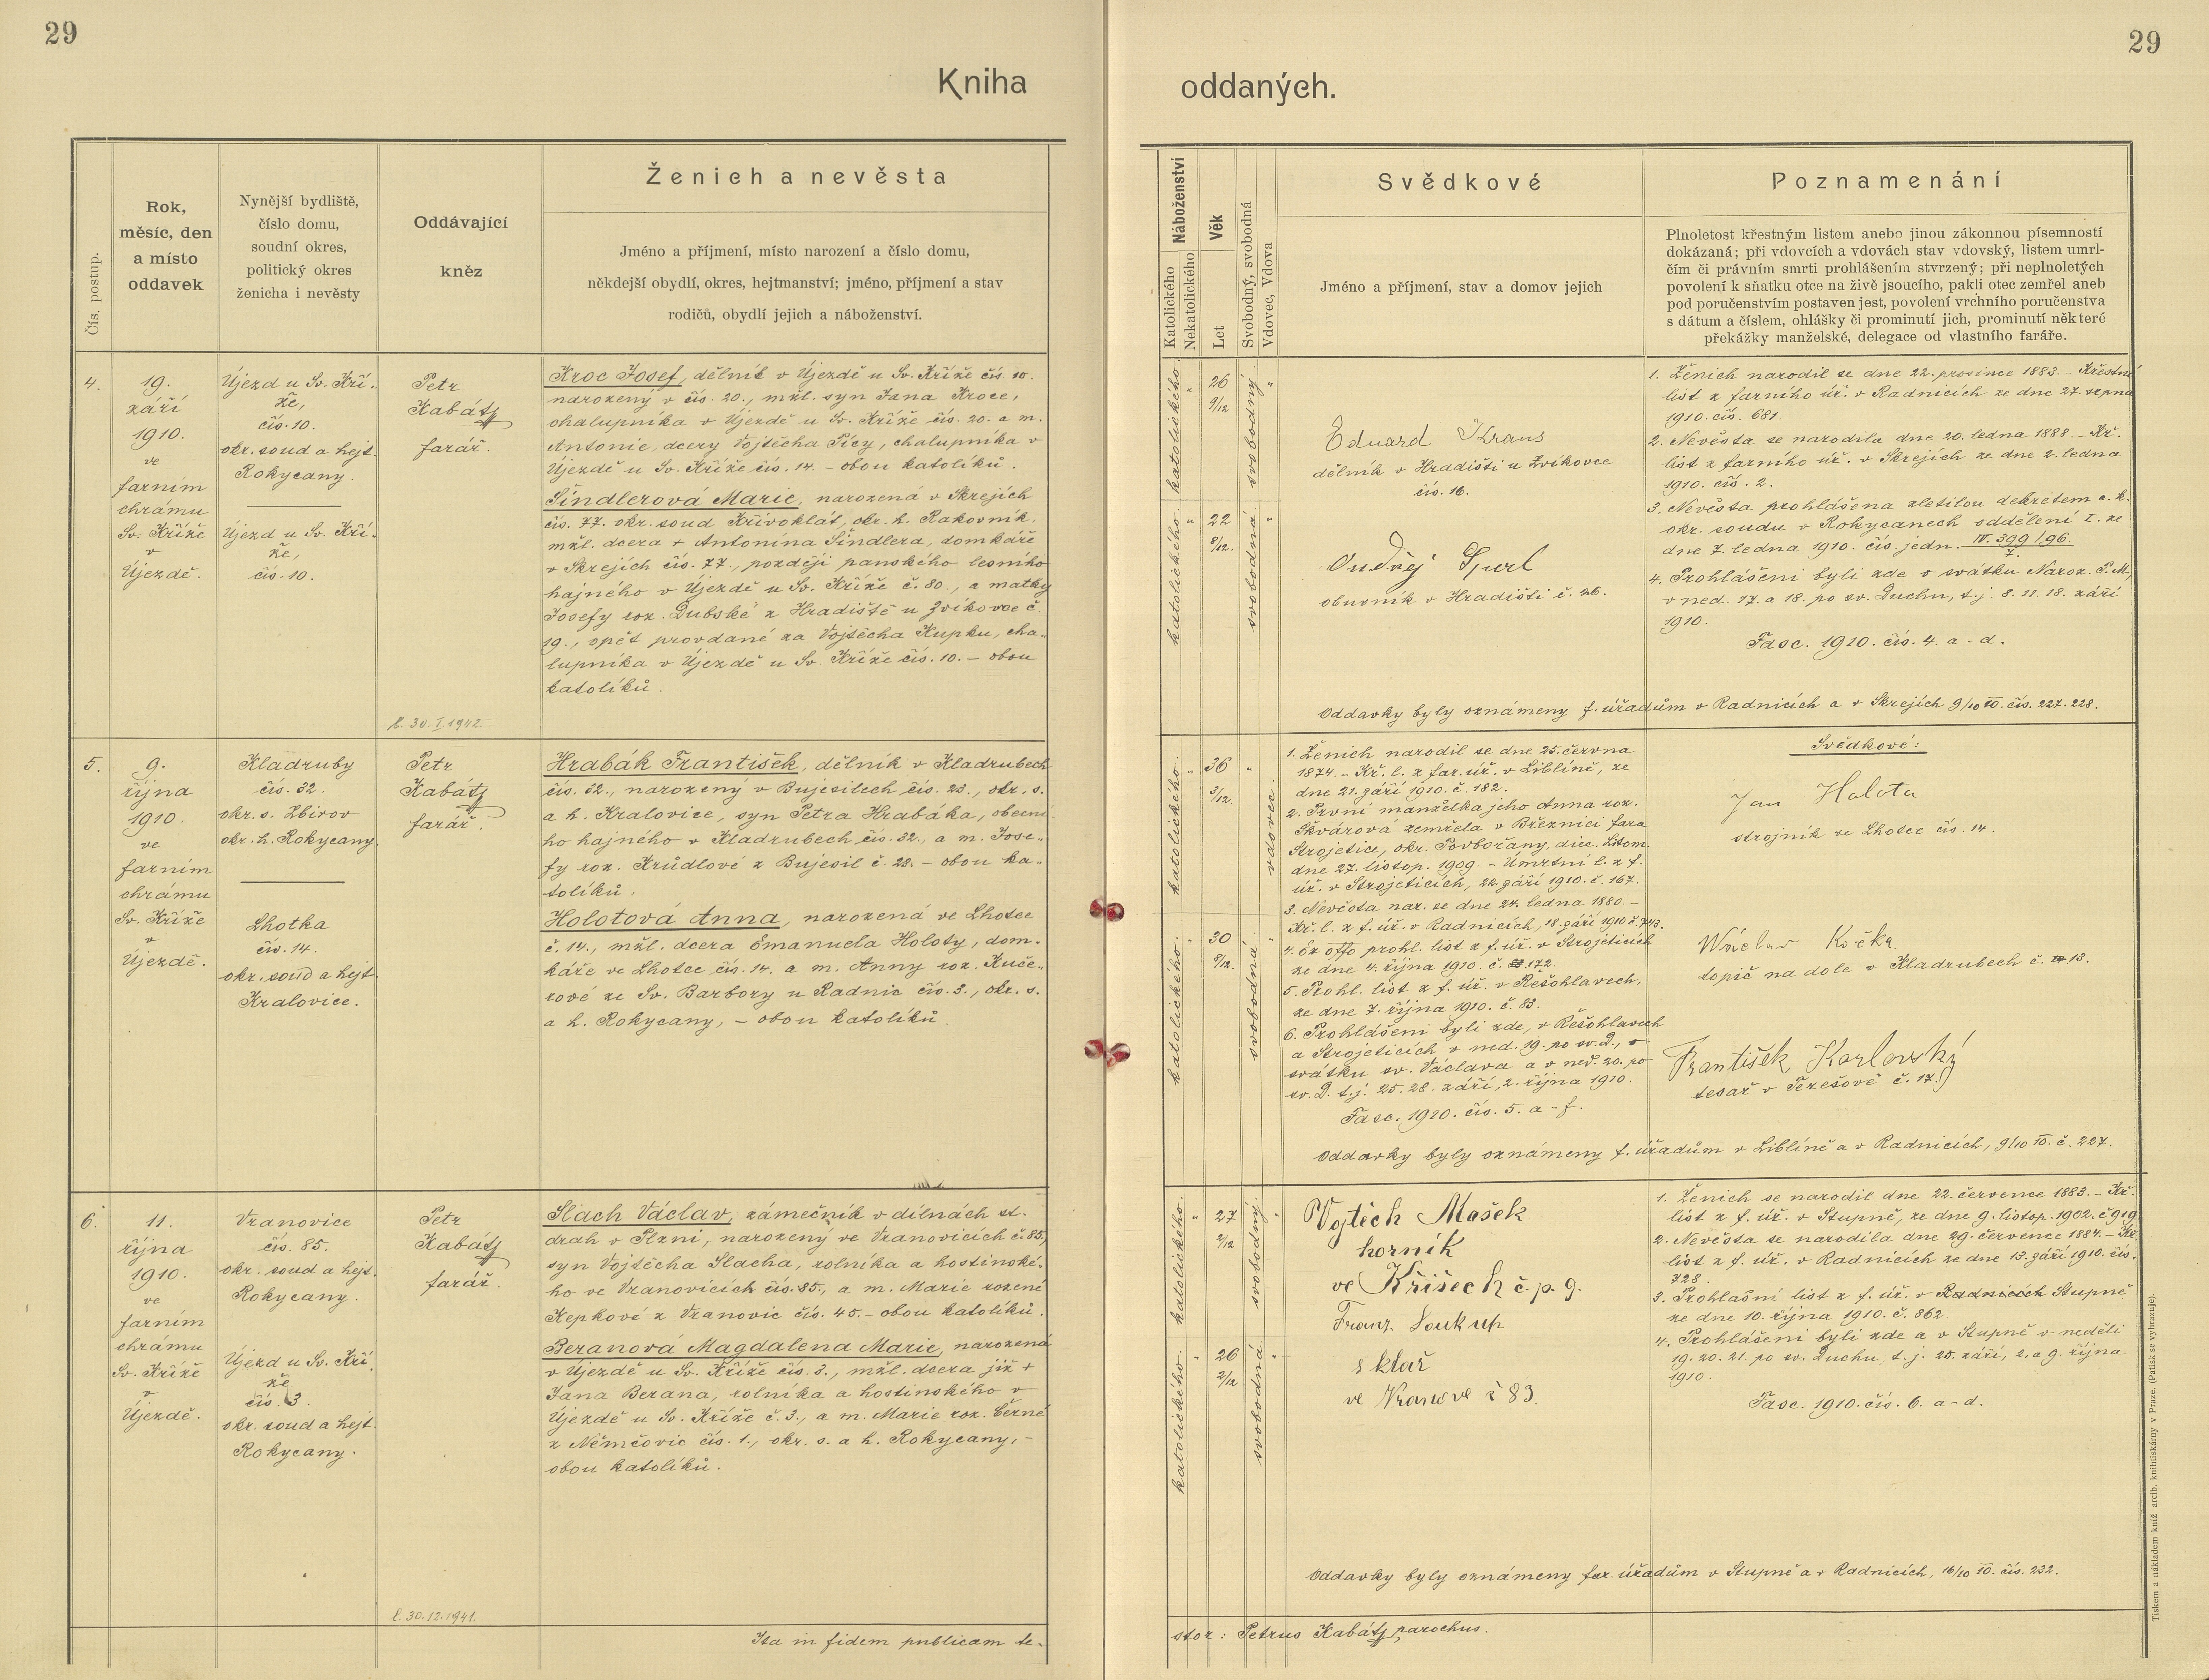 29
29
Kniha
oddaných.
Čís. postup.
Rok,
měsíc, den
a místo
oddavek
Nynější bydliště,
číslo domu,
soudní okres,
politický okres
ženicha i nevěsty
Oddávající
kněz
Ženich a nevěsta
Jméno a příjmení, místo narození a číslo domu,
někdejší obydlí, okres, hejtmanství; jméno, příjmení a stav
rodičů, obydlí jejich a náboženství.
Náboženství
Katolického
Nekatolického
Věk
Let
Svobodný, svobodná
Vdovec, Vdova
Svědkové
Jméno a příjmení, stav a domov jejich
Poznamenání
Plnoletost křestným listem anebo jinou zákonnou písemností
dokázaná; při vdovcích a vdovách stav vdovský, listem umrl-
čím či právním smrti prohlášením stvrzený; při neplnoletých
povolení k sňatku otce na živě jsoucího, pakli otec zemřel aneb
pod poručenstvím postaven jest, povolení vrchního poručenstva
s dátum a číslem, ohlášky či prominutí jich, prominutí některé
překážky manželské, delegace od vlastního faráře.
4.
19.
září
1910.
ve
farním
chrámu
Sv. Kříže
v
Újezdě.
Újezd u Sv. Kří-
že,
čís. 10.
okr. soud a hejt.
Rokycany.
Újezd u Sv. Kří-
že,
čís. 10.
Petr
Kabátj
farář.
Kroc Josef, dělník v Újezdě u Sv. Kříže čís. 10.
narozený v čís. 20., mžl. syn Jana Kroce,
chalupníka v Újezdě u Sv. Kříže čís. 20. a m.
Antonie, dcery Vojtěcha Pícy, chalupníka v
Újezdě u Sv. Kříže čís. 14. – obou katolíků.
Šindlerová Marie, narozená v Skrejích
čís. 77. okr. soud Křivoklát, okr. h. Rakovník,
mžl. dcera + Antonína Šindlera, domkáře
v Skrejích čís. 77., později panského lesního
hajného v Újezdě u Sv. Kříže č. 80., a matky
Josefy roz. Dubské z Hradiště u Zvíkovce č.
19., opět provdané za Vojtěcha Kupku, cha-
lupníka v Újezdě u Sv. Kříže čís. 10. – obou
katolíků.
l. 30. I. 1942.
katolického.
"
26
9/12
svobodný.
"
katolického.
"
22
8/12.
svobodná.
"
Eduard Kraus
dělník v Hradišti u Zvíkovce
čís. 16.
Ondřej Špurl
obuvník v Hradišti č. 26.
1. Ženich narodil se dne 22. prosince 1883. – Křestní
list z farního úř. v Radnicích ze dne 27. srpna
1910. čís. 681.
2. Nevěsta se narodila dne 20. ledna 1888. – Kř.
list z farního úř. v Skrejích ze dne 2. ledna
1910. čís. 2.
3. Nevěsta prohlášena zletilou dekretem c. k.
okr. soudu v Rokycanech oddělení I. ze
dne 7. ledna 1910. čís. jedn. IV. 399/96.
7.
4. Prohlášeni byli zde o svátku Naroz. P. M.,
v ned. 17. a 18. po sv. Duchu, t. j. 8. 11. 18. září
1910.
Fasc. 1910. čís. 4. a – d.
Oddavky byly oznámeny f. úřadům v Radnicích a v Skrejích 9/10 10. čís. 227. 228.
5.
9.
října
1910.
ve
farním
chrámu
Sv. Kříže
v
Újezdě.
Kladruby
čís. 32.
okr. s. Zbirov
okr. h. Rokycany.
Lhotka
čís. 14.
okr. soud a hejt.
Kralovice.
Petr
Kabátj
farář.
Hrabák František, dělník v Kladrubech
čís. 32., narozený v Bujesilech čís. 23., okr. s.
a h. Kralovice, syn Petra Hrabáka, obecní-
ho hajného v Kladrubech čís. 32., a m. Jose-
fy roz. Krůdlové z Bujesil č. 28. – obou ka-
tolíků.
Holotová Anna, narozená ve Lhotce
č. 14., mžl. dcera Emanuela Holoty, dom-
káře ve Lhotce čís. 14. a m. Anny roz. Kuče-
rové ze Sv. Barbory u Radnic čís. 3., okr. s.
a h. Rokycany, – obou katolíků.
katolického.
"
36
3/12.
"
vdovec.
katolického.
"
30
8/12.
svobodná.
"
1. Ženich narodil se dne 25. června
1874. – Kř. l. z far. úř. v Liblíně, ze
dne 21. září 1910. č. 182.
2. První manželka jeho Anna roz.
Škvárová zemřela v Březnici fara
Strojetice, okr. Podbořany, diec. Litom.
dne 27. listop. 1909. – Úmrtní l. z f.
úř. v Strojeticích, 22. září 1910. č. 167.
3. Nevěsta nar. se dne 24. ledna 1880. –
Kř. l. z f. úř. v Radnicích, 18. září 1910 č. 743.
4. Ex offo prohl. list z f. úř. v Strojeticích
ze dne 4. října 1910. č. 172.
5. Prohl. list z f. úř. v Řešohlavech,
ze dne 7. října 1910. č. 83.
6. Prohlášeni byli zde, v Řešohlavech
a Strojeticích v ned. 19. po sv. D., o
svátku sv. Václava a v ned. 20. po
sv. D. t. j. 25. 28. září, 2. října 1910.
Fasc. 1910. čís. 5. a – f.
Svědkové:
Jan Holota
strojník ve Lhotce čís. 14.
Václav Kočka
topič na dole v Kladrubech č. 13.
František Karlovský
tesař v Terešově č. 17.
Oddavky byly oznámeny f. úřadům v Liblíně a v Radnicích, 9/10 10. č. 227.
6.
11.
října
1910.
ve
farním
chrámu
Sv. Kříže
v
Újezdě.
Vranovice
čís. 85.
okr. soud a hejt.
Rokycany.
Újezd u Sv. Kří-
že
čís. 3.
okr. soud a hejt.
Rokycany.
Petr
Kabátj
farář.
Slach Václav, zámečník v dílnách st.
drah v Plzni, narozený ve Vranovicích č. 85,
syn Vojtěcha Slacha, rolníka a hostinské-
ho ve Vranovicích čís. 85., a m. Marie rozené
Kepkové z Vranovic čís. 45. – obou katolíků.
Beranová Magdalena Marie, narozená
v Újezdě u Sv. Kříže čís. 3., mžl. dcera již +
Jana Berana, rolníka a hostinského v
Újezdě u Sv. Kříže č. 3., a m. Marie roz. Černé
z Němčovic čís. 1., okr. s. a h. Rokycany, –
obou katolíků.
l. 30. 12. 1941.
katolického.
"
27
2/12
svobodný.
"
katolického.
"
26
2/12
svobodná.
"
Vojtěch Mašek
horník
ve Křišech č. p. 9.
Franz Soukup
sklař
ve Vranově č 83.
1. Ženich se narodil dne 22. července 1883. – Kř.
list z f. úř. v Stupně, ze dne 9. listop. 1902. č 919
2. Nevěsta se narodila dne 29. července 1884. – Kř.
list z f. úř. v Radnicích ze dne 13. září 1910. čís.
728.
3. Prohlašní list z f. úř. v Radnicích Stupně
ze dne 10. října 1910. č. 862.
4. Prohlášeni byli zde a v Stupně v neděli
19. 20. 21. po sv. Duchu, t. j. 25. září, 2. a 9. října
1910.
Fasc. 1910. čís. 6. a – d.
Oddavky byly oznámeny far. úřadům v Stupně a v Radnicích, 16/10 10. čís. 232.
Ita in fidem publicam te-
stor: Petrus Kabátj parochus.
Tiskem a nákladem kníž. arcib. knihtiskárny v Praze. (Patisk se vyhrazuje).